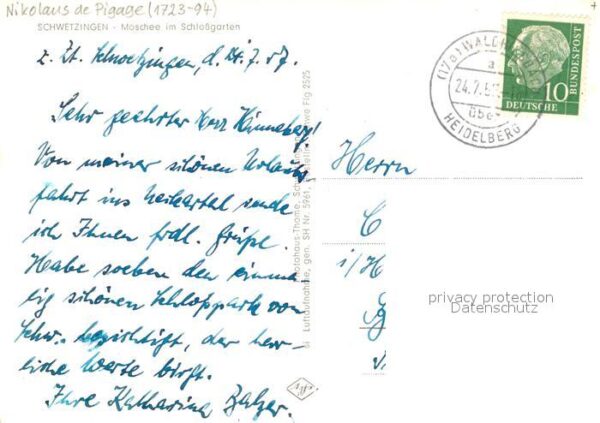 Nikolaus de Pigage (1723-94)
SCHWETZINGEN - Moschee im Schloßgarten
z. Zt. Schwetzingen, d. 24.7.57.
Sehr geehrter Herr Hinneberg!
Von meiner schönen Urlaubs-
fahrt ins Neckartal sende
ich Ihnen frdl. Grüße.
Habe soeben den einma-
lig schönen Schloßpark von
Schw. besichtigt, der herr-
liche Werte birgt.
Ihre Katharina Balzer.
Herrn
C
i/H
privacy protection
Datenschutz
(17a) WALD
a
24.7.5
über
HEIDELBERG
10
DEUTSCHE
BUNDESPOST